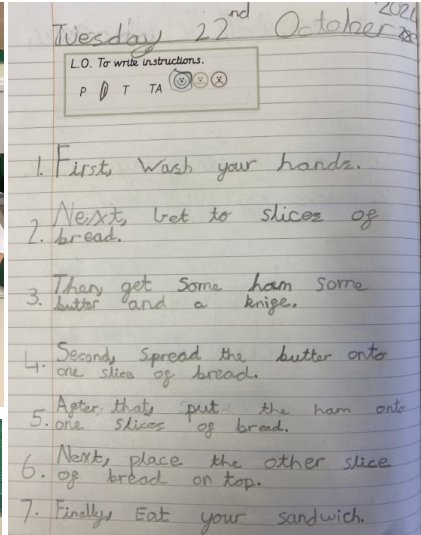 Tuesday 22nd October
L.O. To write instructions.
P I T TA
1. First, Wash your hands.
Next, Get to slices of
2. bread.
Then, get Some ham some
3. butter and a knife.
Second, Spread the butter onto
4. one slice of bread.
After that, put the ham onto
5. one slices of bread.
Next, place the other slice
6. of bread on top.
7. Finally, Eat your sandwich.